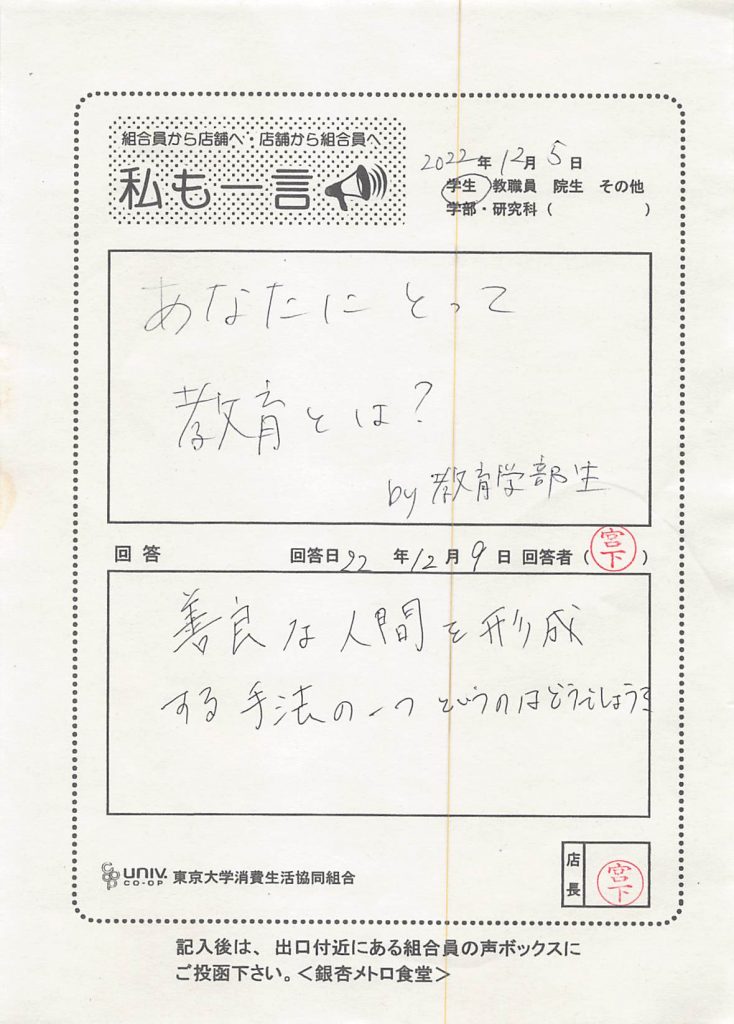 組合員から店舗へ・店舗から組合員へ
私も一言
2022年12月5日
学生 教職員 院生 その他
学部・研究科( )
あなたにとって
教育とは?
by 教育学部生
回答 回答日22年12月9日 回答者(宮下)
善良な人間を形成
する手法の一つというのはどうでしょう?
UNIV. CO-OP 東京大学消費生活協同組合
店長 宮下
記入後は、出口付近にある組合員の声ボックスに
ご投函下さい。<銀杏メトロ食堂>